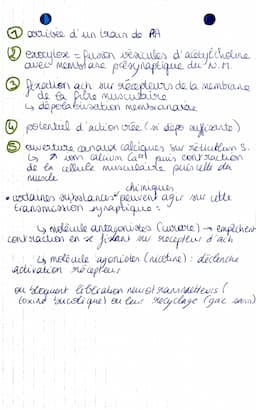 ① arrivée d'un train de PA
② exocytose = fusion vésicules d'acétylcholine
avec membrane présynaptique du N.M.
③ fixation ach sur récepteurs de la membrane
de la fibre musculaire
↳ dépolarisation membranaire
④ potentiel d'action crée (si dépo suffisante)
⑤ ouverture canaux calciques sur réticulum S.
↳ ↗ ions calcium Ca²⁺ puis contraction
de la cellule musculaire puis celle du
muscle
chimiques
• certaines substances peuvent agir sur cette
transmission synaptique :
↳ molécule antagonistes (curare) → empêchent
contraction en se fixant sur récepteur d'ach
↳ molécule agonistes (nicotine) : déclenche
activation récepteur
ou bloquent libération neurotransmetteurs (
toxine bucolique) ou leur recyclage (gaz sarin)